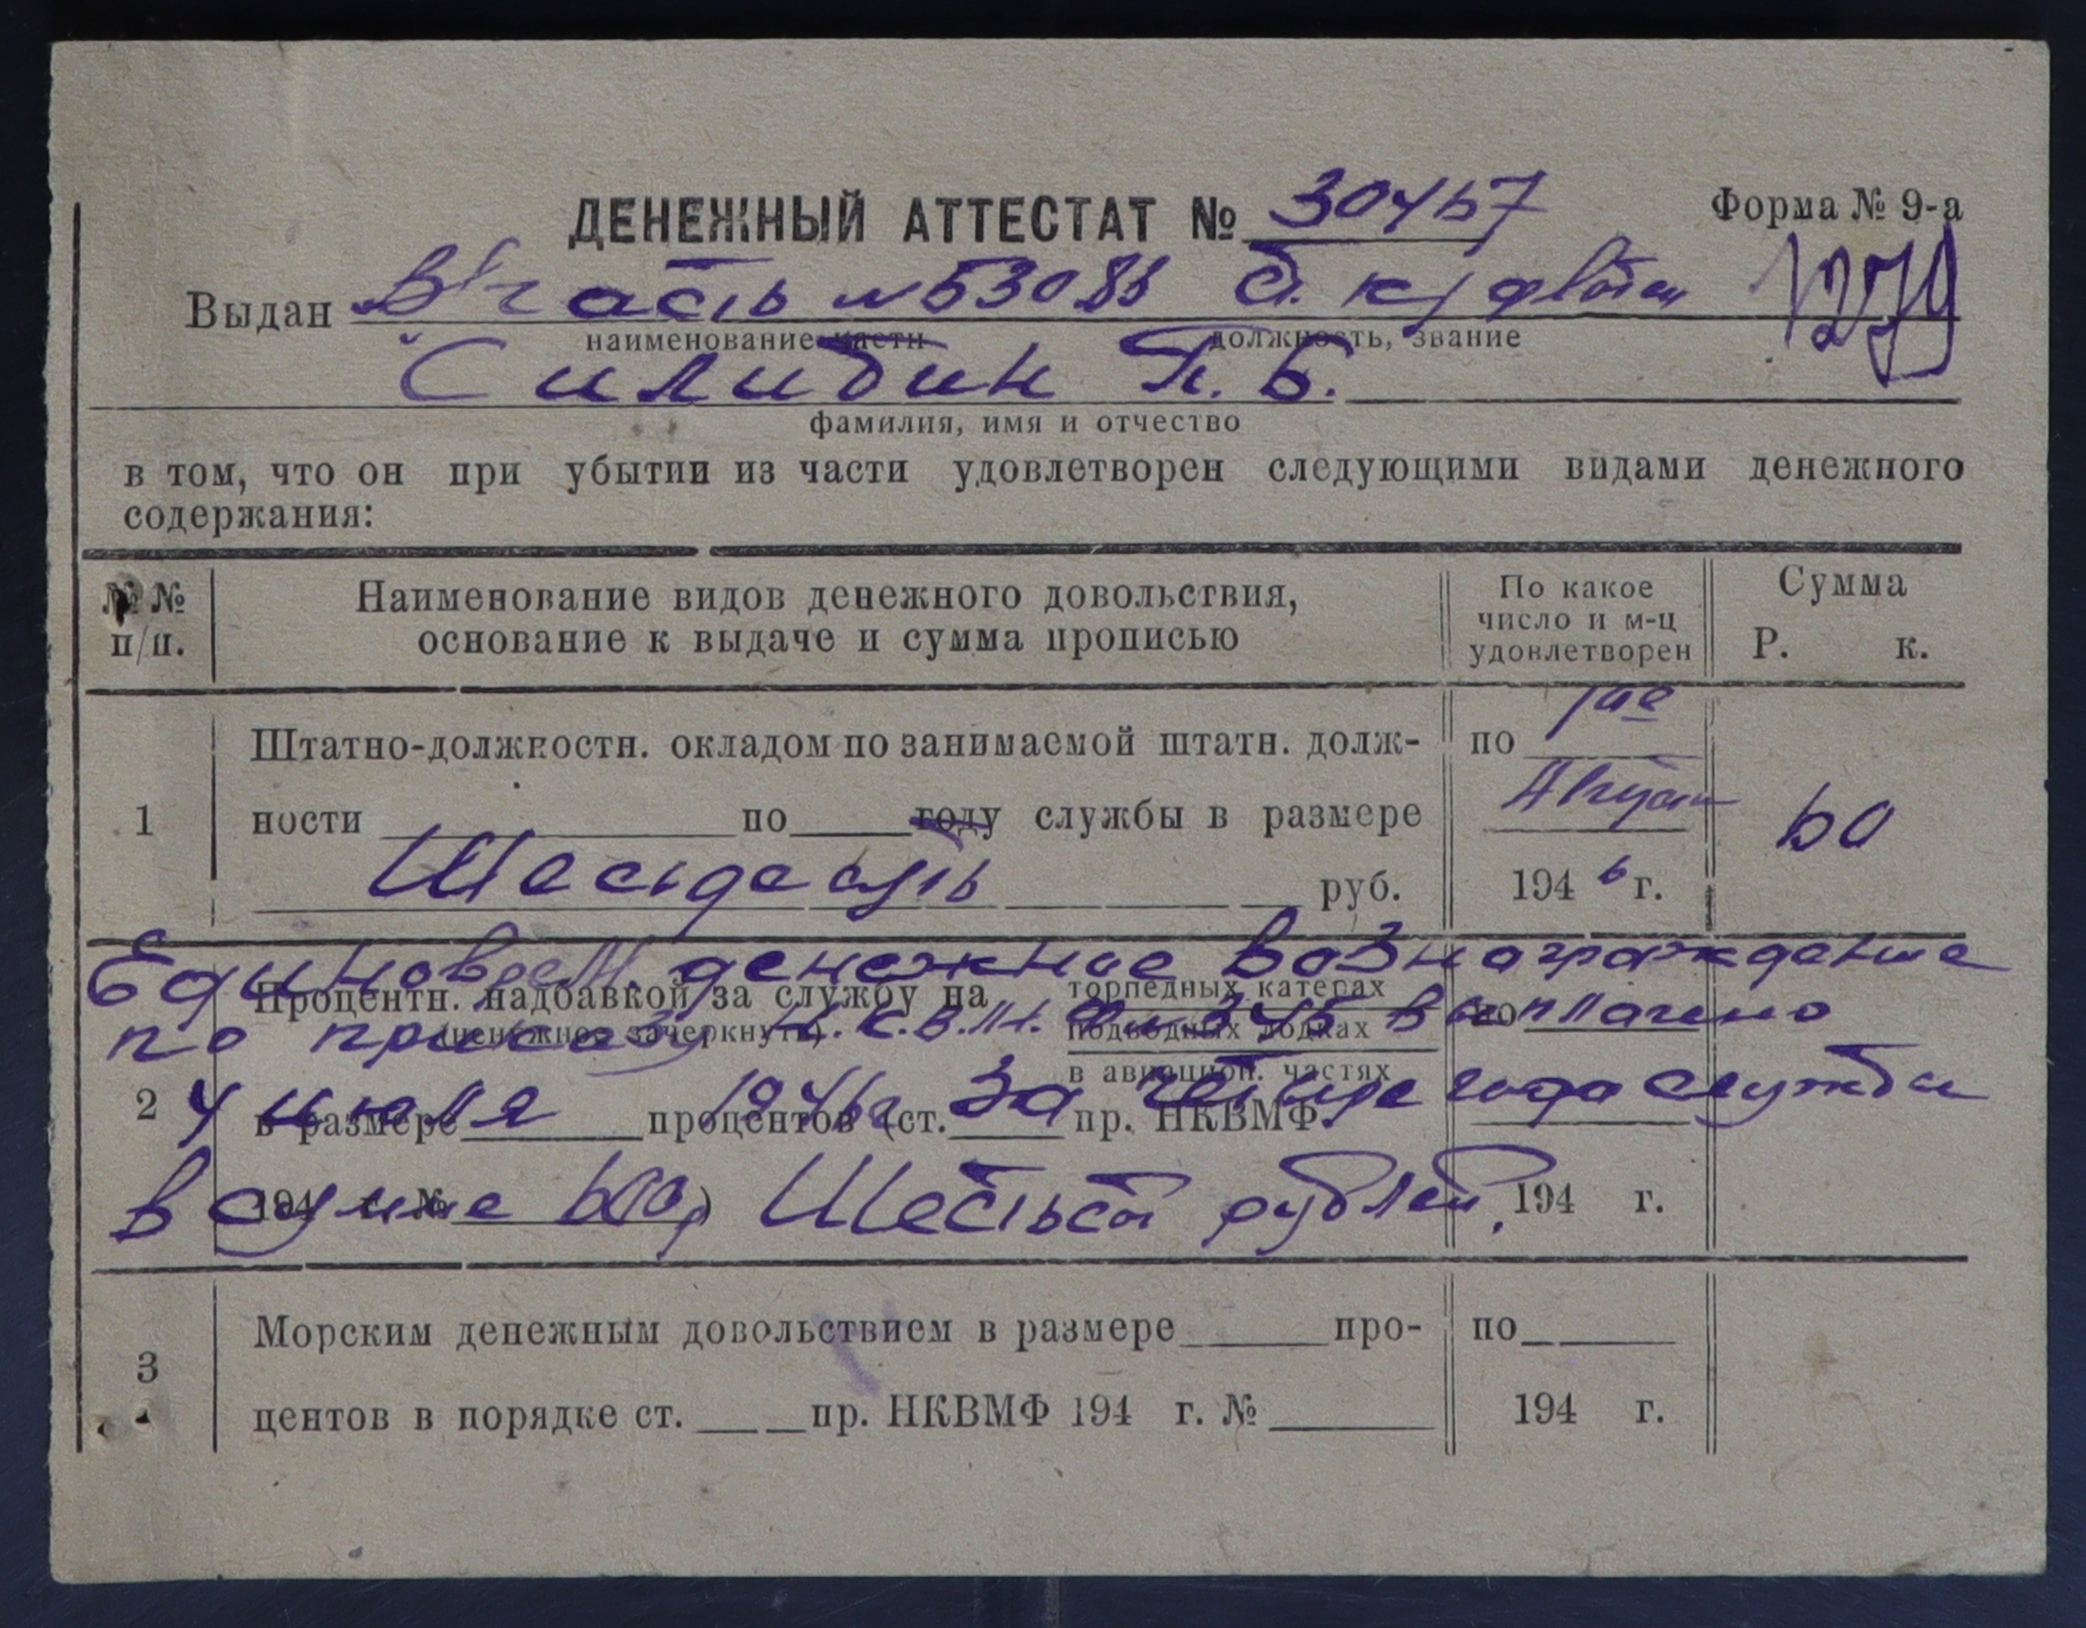 ДЕНЕЖНЫЙ АТТЕСТАТ № 30467
Форма № 9-а
1279
Выдан в/часть № 53088 ст. к/флота
наименование части должность, звание
Силибин П. Б.
фамилия, имя и отчество
в том, что он при убытии из части удовлетворен следующими видами денежного
содержания:
№ № п/п.
Наименование видов денежного довольствия,
основание к выдаче и сумма прописью
По какое
число и м-ц
удовлетворен
Сумма
Р. к.
1
Штатно-должностн. окладом по занимаемой штатн. долж-
ности по году службы в размере
Шесьдесять руб.
по 1ое
Август
194 6 г.
60
Единоврем. денежное вознаграждение
по приказу Н.К.В.М.Ф. № 345 выплачено
4 июля 1946 г. за четыре года службы
в сумме 600, Шестьсот рублей.
2
Процентн. надбавкой за службу на
(ненежное зачеркнуть)
торпедных катерах
подводных лодках
в авиацион. частях
в размере процентов (ст. пр. НКВМФ
194 г. № )
по
194 г.
3
Морским денежным довольствием в размере про-
центов в порядке ст. пр. НКВМФ 194 г. №
по
194 г.